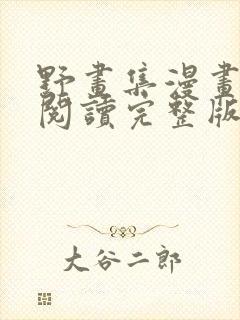 野畫集漫畫
閱讀完整版
大谷二郎